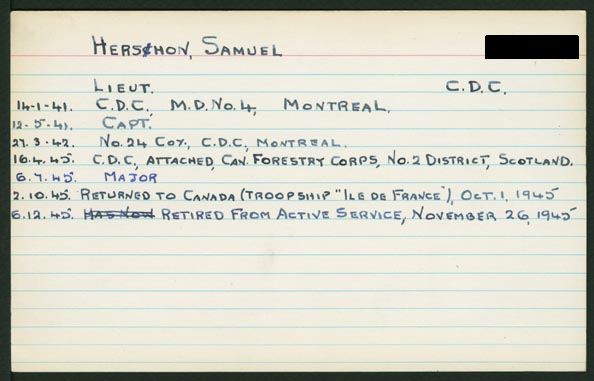 HERSCHON, SAMUEL
LIEUT. C.D.C.
14-1-41. C.D.C, M.D. NO. 4, MONTREAL.
12-5-41. CAPT.
27.3.42. NO. 24 COY., C.D.C, MONTREAL.
16.4.45. C.D.C, ATTACHED, CAN. FORESTRY CORPS, NO. 2 DISTRICT, SCOTLAND.
6.7.45. MAJOR
2.10.45. RETURNED TO CANADA (TROOPSHIP "ILE DE FRANCE"), OCT. 1, 1945
6.12.45. HAS NOW RETIRED FROM ACTIVE SERVICE, NOVEMBER 26, 1945